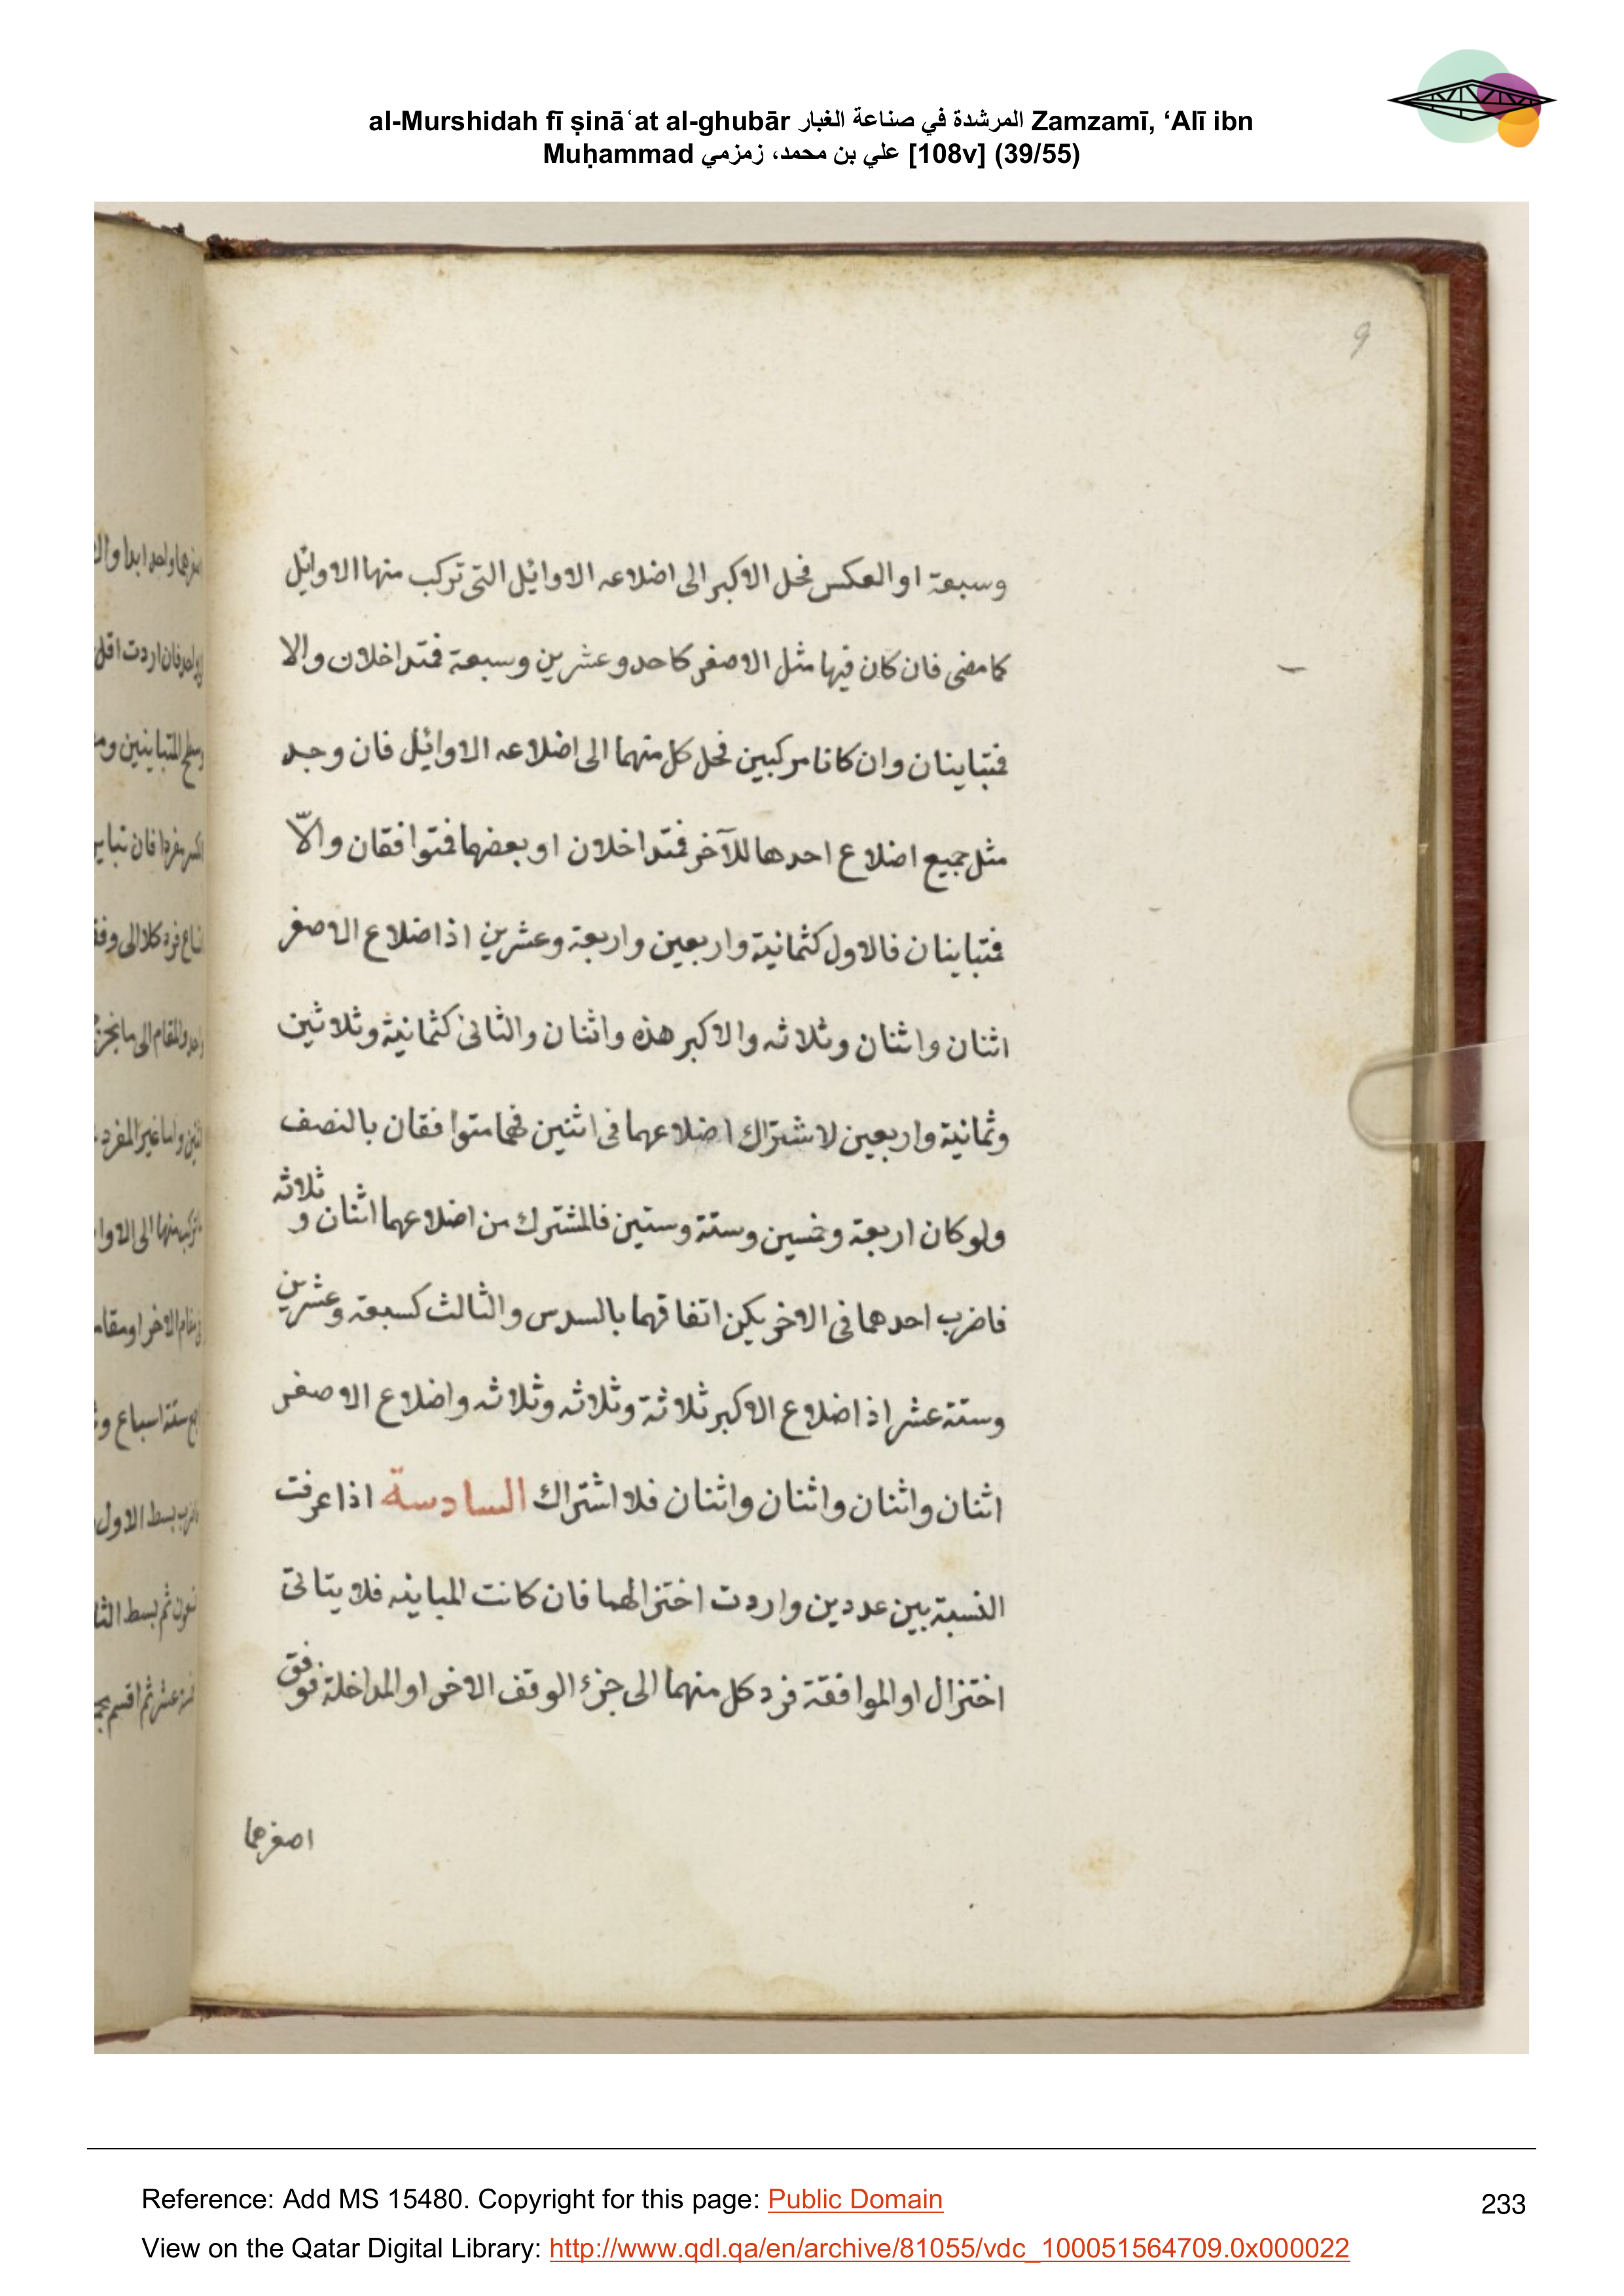 al-Murshidah fī ṣināʿat al-ghubār المرشدة في صناعة الغبار Zamzamī, ‘Alī ibn
Muḥammad علي بن محمد، زمزمي [108v] (39/55)
9
وسبعة او العكس فحل الاكبر الى اضلاعه الاوائل التى تركب منها الاوائل
كما مضى فان كان فيها مثل الاصغر كاحد وعشرين وسبعة فمتداخلان والا
فمتباينان وان كانا مركبين فحل كل منهما الى اضلاعه الاوائل فان وجد
مثل جميع اضلاع احدها للآخر فمتداخلان او بعضها فمتوافقان والّا
فمتباينان فالاول كثمانية واربعين واربعة وعشرين اذ اضلاع الاصغر
اثنان واثنان وثلاثه والاكبر هذه واثنان والثانى كثمانية وثلاثين
وثمانية واربعين لاشتراك اضلاعهما فى اثنين فهما متوافقان بالنصف
ولو كان اربعة وخمسين وستة وستين فالمشترك من اضلاعهما اثنان و ثلاثه
فاضرب احدهما فى الاخر يكن اتفاقهما بالسدس والثالث كسبعة وعشرين
وستة عشر اذ اضلاع الاكبر ثلاثة وثلاثه وثلاثه واضلاع الاصغر
اثنان واثنان واثنان واثنان فلا اشتراك السادسة اذا عرفت
النسبة بين عددين واردت اختزالهما فان كانت المباينه فلا يتاتى
اختزال او الموافقة فرد كل منهما الى جزء الوقف الاخر او المداخلة فوفق
اصغرهما
Reference: Add MS 15480. Copyright for this page: Public Domain
233
View on the Qatar Digital Library: http://www.qdl.qa/en/archive/81055/vdc_100051564709.0x000022